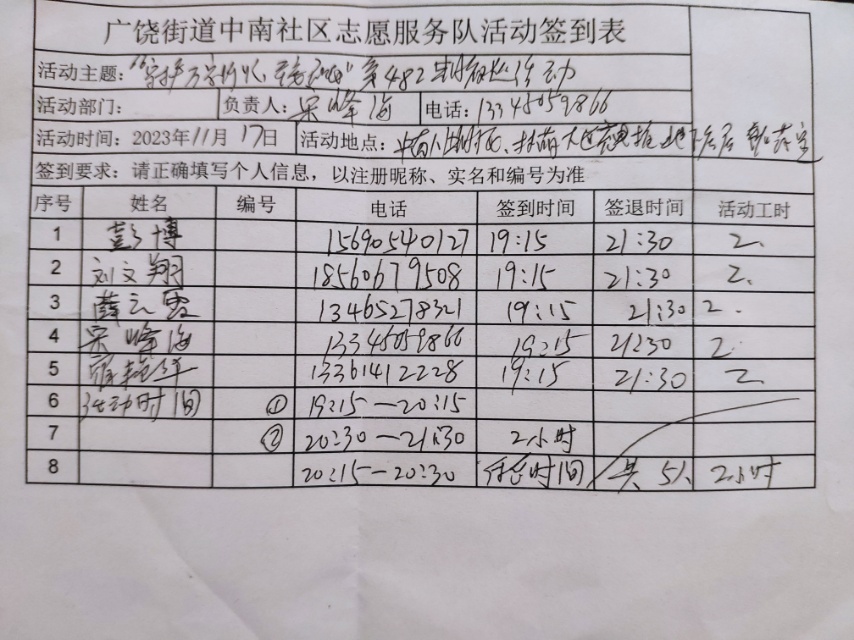 广饶街道中南社区志愿服务队活动签到表
活动主题：第482期 活动
活动部门： 负责人：宋峰海 电话：13345059866
活动时间：2023年11月17日 活动地点：中南
签到要求：请正确填写个人信息，以注册昵称、实名和编号为准
序号 姓名 编号 电话 签到时间 签退时间 活动工时
1 彭博 15690540127 19:15 21:30 2.
2 刘文翔 18560679508 19:15 21:30 2.
3 薛云霞 13465278321 19:15 21:30 2.
4 宋峰海 13345059866 19:15 21:30 2.
5 13361412228 19:15 21:30 2.
6 活动时间 ① 19:15—20:15
7 ② 20:30—21:30 2小时
8 20:15—20:30 休息时间 共5人 2小时